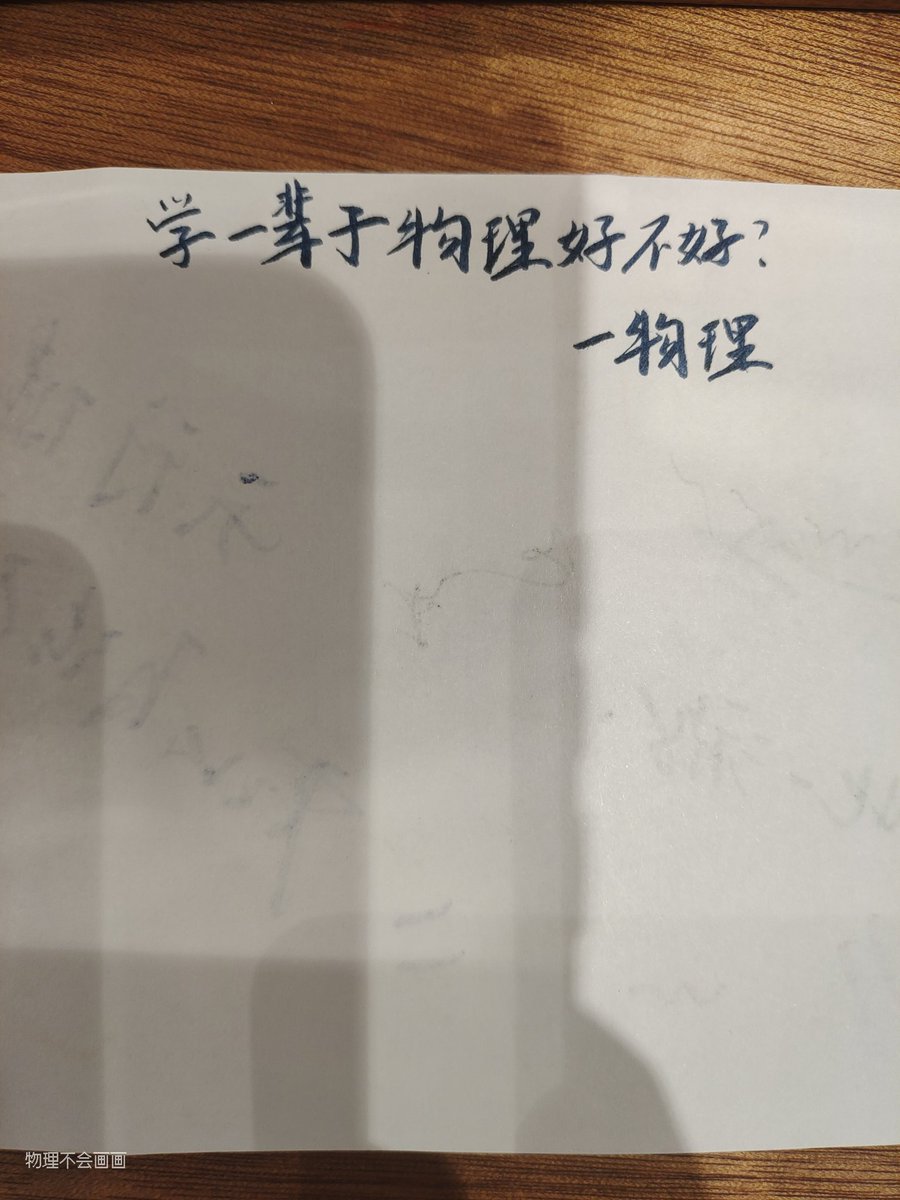 学一辈子物理好不好？
一物理
物理不会画画